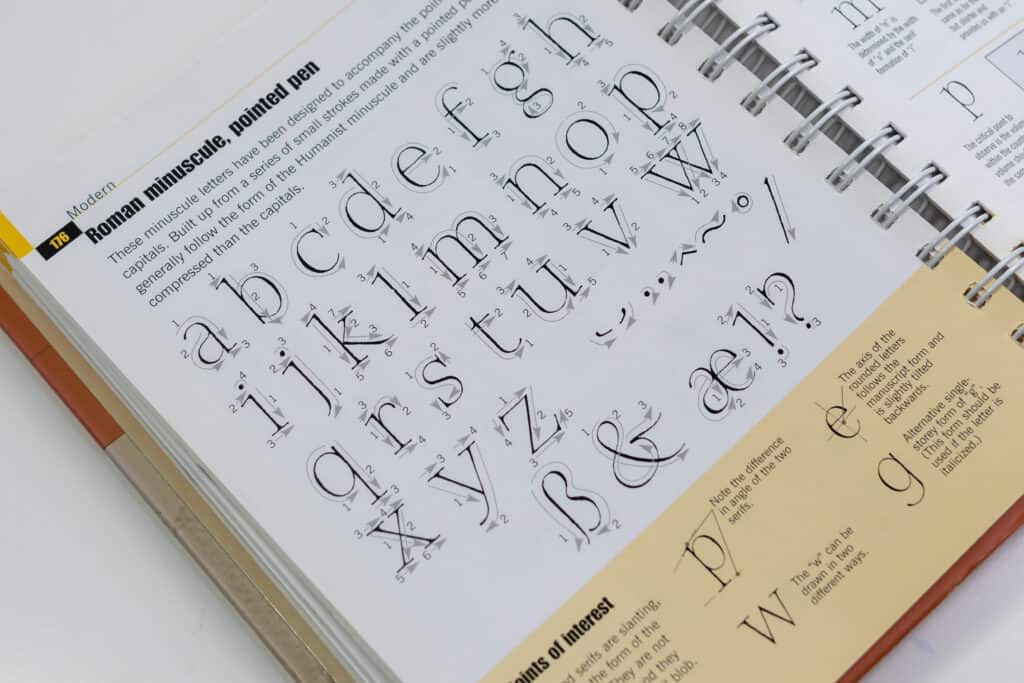 Modern
176
Roman minuscule, pointed pen
These minuscule letters have been designed to accompany the
capitals. Built up from a series of small strokes made with a pointed
generally follow the form of the Humanist minuscule and are slightly more
compressed than the capitals.
a b c d e f g h
i j k l m n o p
q r s t u v w
x y z ß & æ ! ?
The axis of the
rounded letters
follows the
manuscript form and
is slightly tilted
backwards.
e
Alternative single-
storey form of "g".
(This form should be
used if the letter is
italicized.)
g
Note the difference
in angle of the two
serifs.
p
The "w" can be
drawn in two
different ways.
w
Points of interest
serifs are slanting,
the form of the
They are not
and they
blob.
m
The width of "m" is
determined by the width
of "n" and the
formation of
provides us with an
p
The critical point to
observe is the
within the
volume should
the